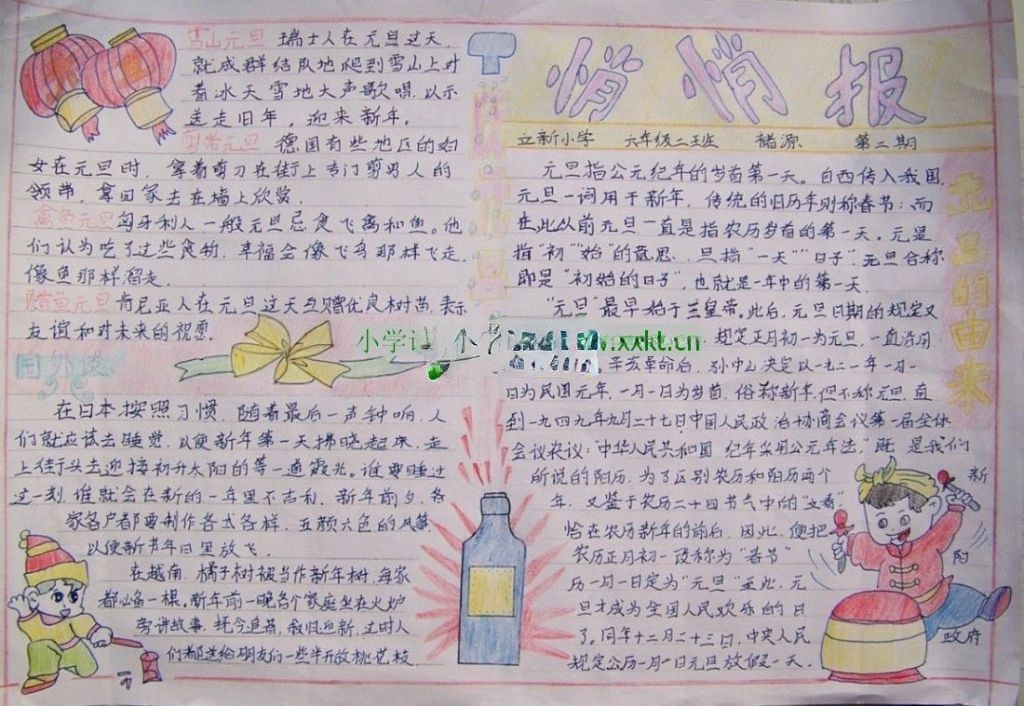 悄悄报
立新小学 六年级二班 褚源 第二期
元旦的由来
元旦指公元纪年的岁首第一天。自西传入我国,
元旦一词用于新年,传统的旧历年则称春节;而
在此以前元旦一直是指农历岁首的第一天。元是
指"初""始"的意思,旦指"一天""日子"元旦合称
即是"初始的日子",也就是一年中的第一天。
"元旦"最早始于三皇五帝。此后,元旦日期的规定又
规定正月初一为元旦,一直沿用
辛亥革命后,孙中山决定以一九一二年一月一
日为民国元年,一月一日为岁首,俗称新年,但不称元旦,直
到一九四九年九月二十七日中国人民政治协商会议第一届全体
会议决议:"中华人民共和国纪年采用公元年法",既是我们
所说的阳历。为了区别农历和阳历两个新
年,又鉴于农历二十四节气中的"立春"
恰在农历新年的前后,因此,便把
农历正月初一改称为"春节"阳
历一月一日定为"元旦"至此,元
旦才成为全国人民欢标的日
了。同年十二月二十三日,中央人民政府
规定公历一月一日元旦放假一天。
雪山元旦 瑞士人在元旦过天,
就成群结队地爬到雪山上对
着冰天雪地大声歌唱,以示
送走旧年,迎来新年。
剪带元旦 德国有些地区的妇
女在元旦时,拿着剪刀在街上专门剪男人的
领带,拿回家去在墙上欣赏。
禽鱼元旦 匈牙利人一般元旦忌食飞禽和鱼。他
们认为吃了这些食物,幸福会像飞鸟那样飞走,
像鱼那样溜走。
赠苗元旦 肯尼亚人在元旦这天互赠优良树苗,表示
友谊和对未来的祝愿。
国外谈
在日本按照习惯,随着最后一声钟响,人
们就应该去睡觉,以便新年第一天拂晓起床,走
上街头去迎接初升太阳的第一道霞光。谁要睡过
这一刻,谁就会在新的一年里不吉利,新年前夕,各
家各户都要制作各式各样、五颜六色的风筝,
以便新书年日里放飞。
在越南,橘子树被当作新年树,每家
都必备一棵。新年前一晚各个家庭坐在火炉
旁讲故事,抚今追昔,叙旧迎新,这时人
们都送给朋友们一些半开放桃花枝
.xxkt.cn